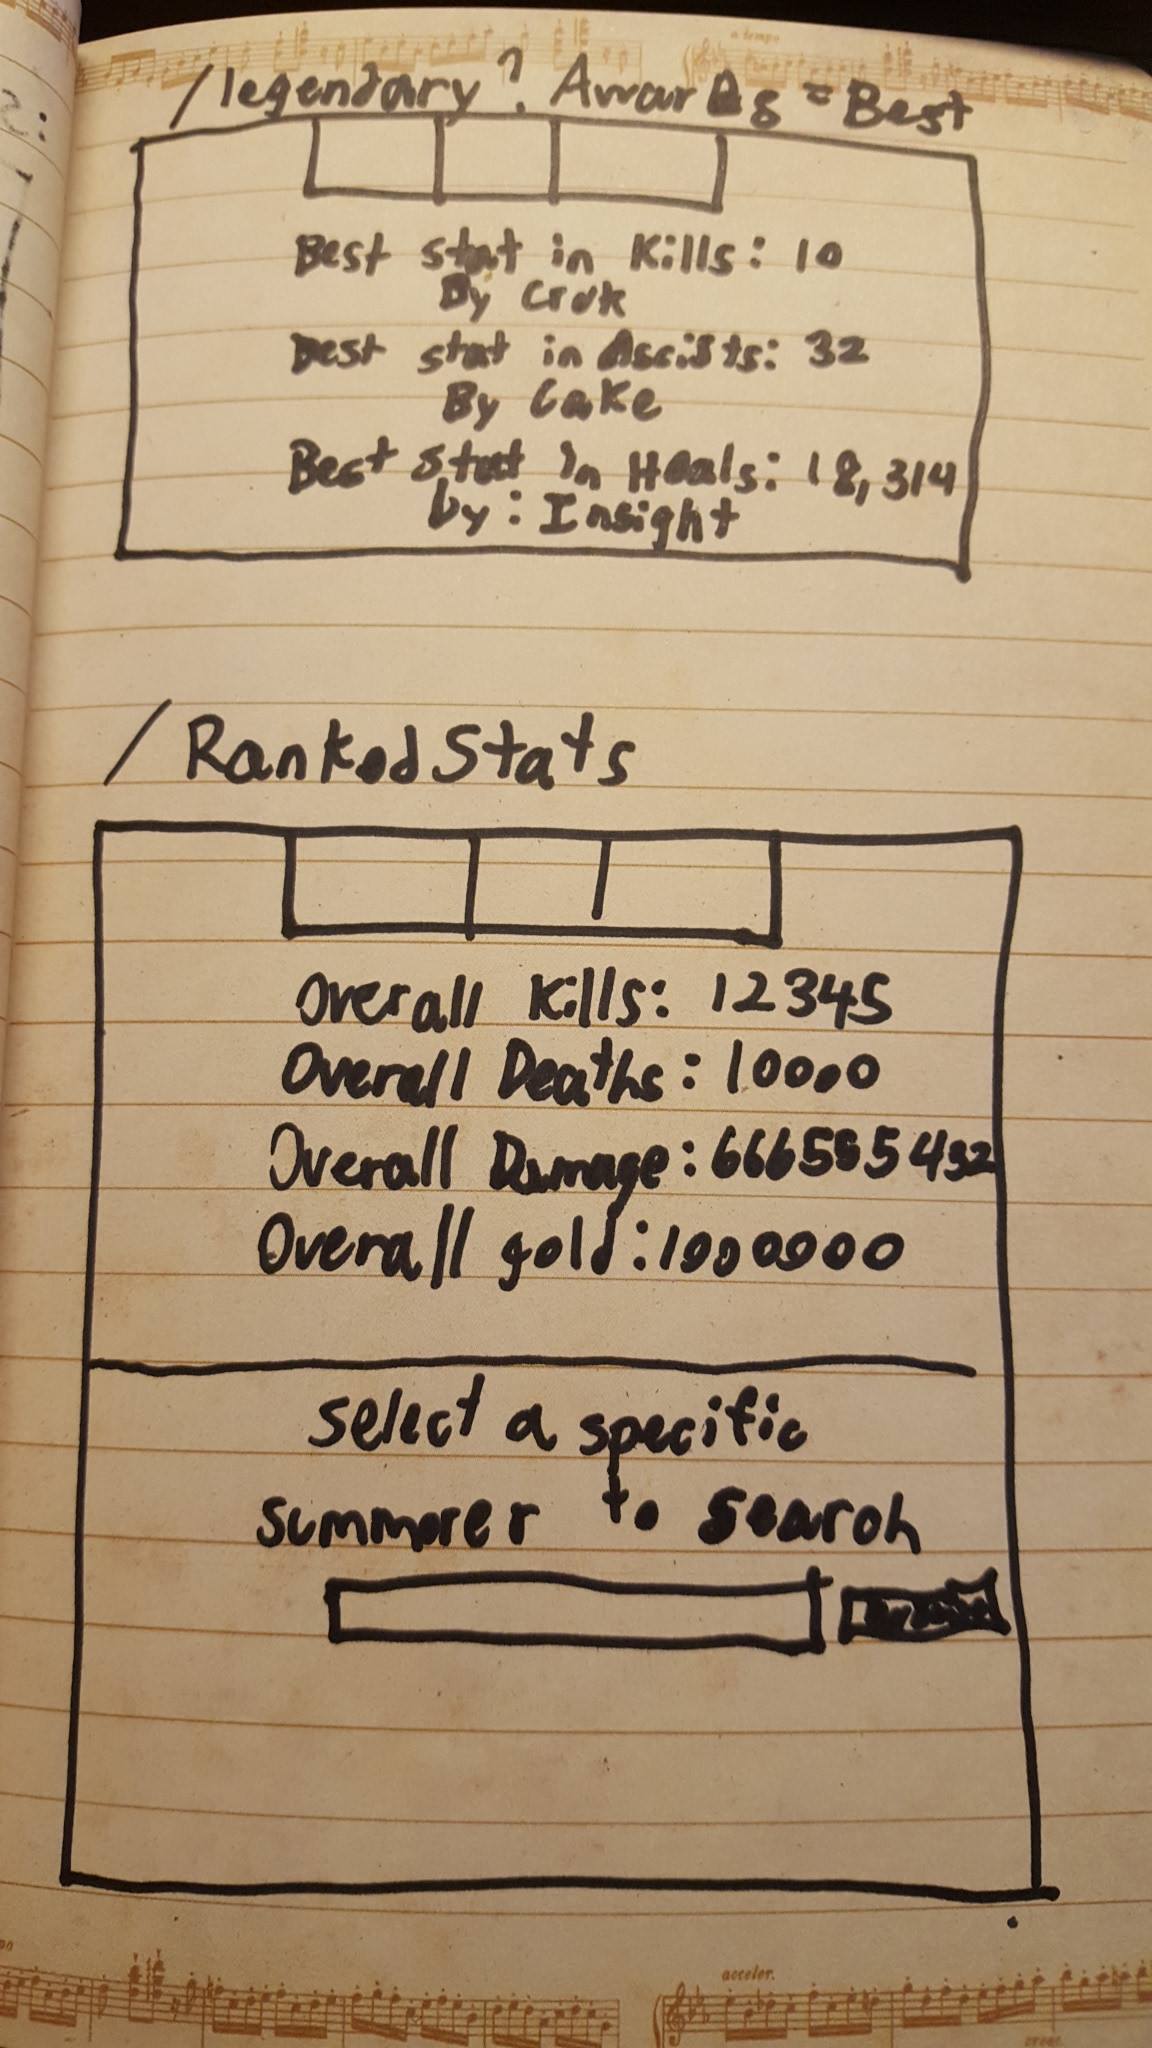 a tempo
/legendary? Awards = Best
Best stat in Kills: 10
By Crok
Best stat in Assists: 32
By Cake
Best stat in Heals: 18,314
by: Insight
/RankedStats
Overall Kills: 12345
Overall Deaths: 10000
Overall Damage: 666555432
Overall gold: 1000000
select a specific
summoner to search
acceler.